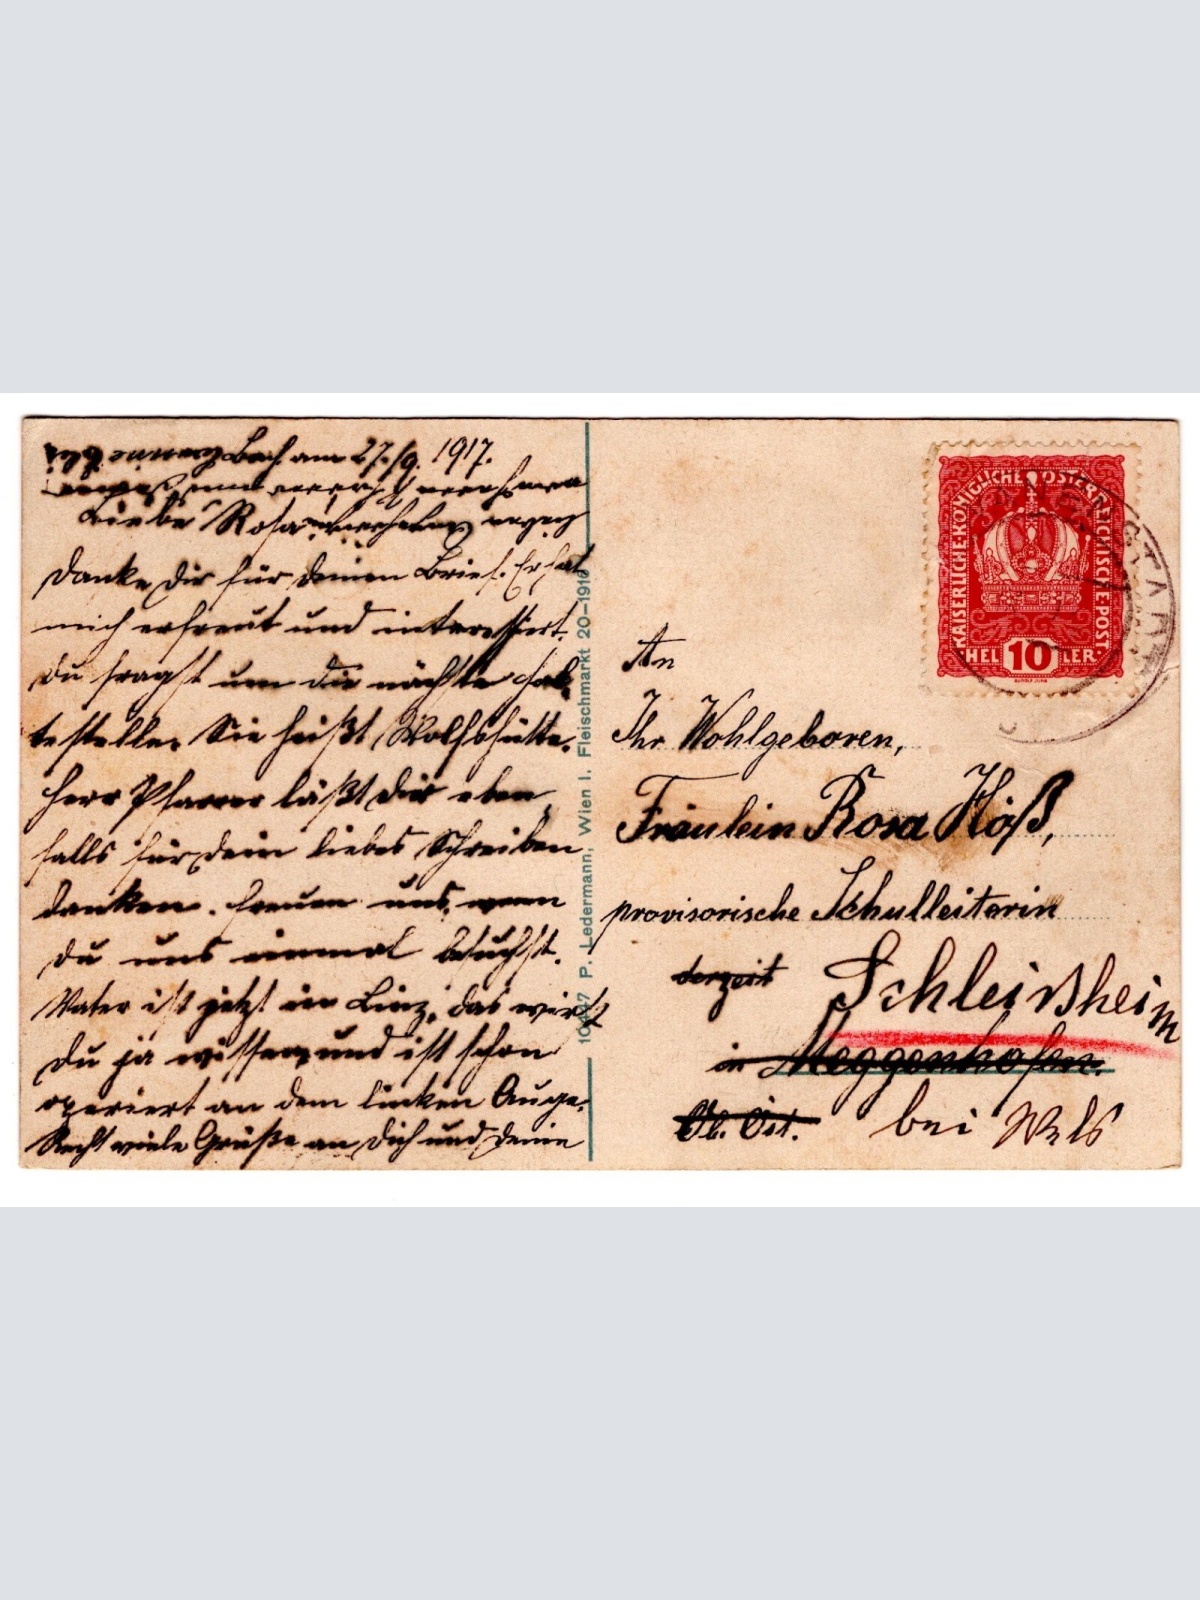 Bach am 27./9. 1917.
Liebe Rosa!
Danke Dir für deinen Brief. Er hat
mich erfreut und interessiert.
Du fragst um die nächste Hal-
testelle. Sie heißt Wolfshütte.
Herr Pfarrer läßt Dir eben
falls für dein liebes Schreiben
danken. Freuen uns, wenn
du uns einmal besuchst.
Vater ist jetzt in Linz, das wirst
Du ja wissen, und ist schon
operiert an dem linken Auge.
Recht viele Grüße an Dich und Deine
1047 P. Ledermann, Wien I. Fleischmarkt 20–1916
KAISERLICHE·KÖNIGLICHE ÖSTERREICHISCHE·POST
HEL 10 LER
An
Ihr Wohlgeboren,
Fräulein Rosa Höß,
provisorische Schulleiterin
derzeit Schleißheim
in Meggenhofen.
Ob. Öst. bei Wels